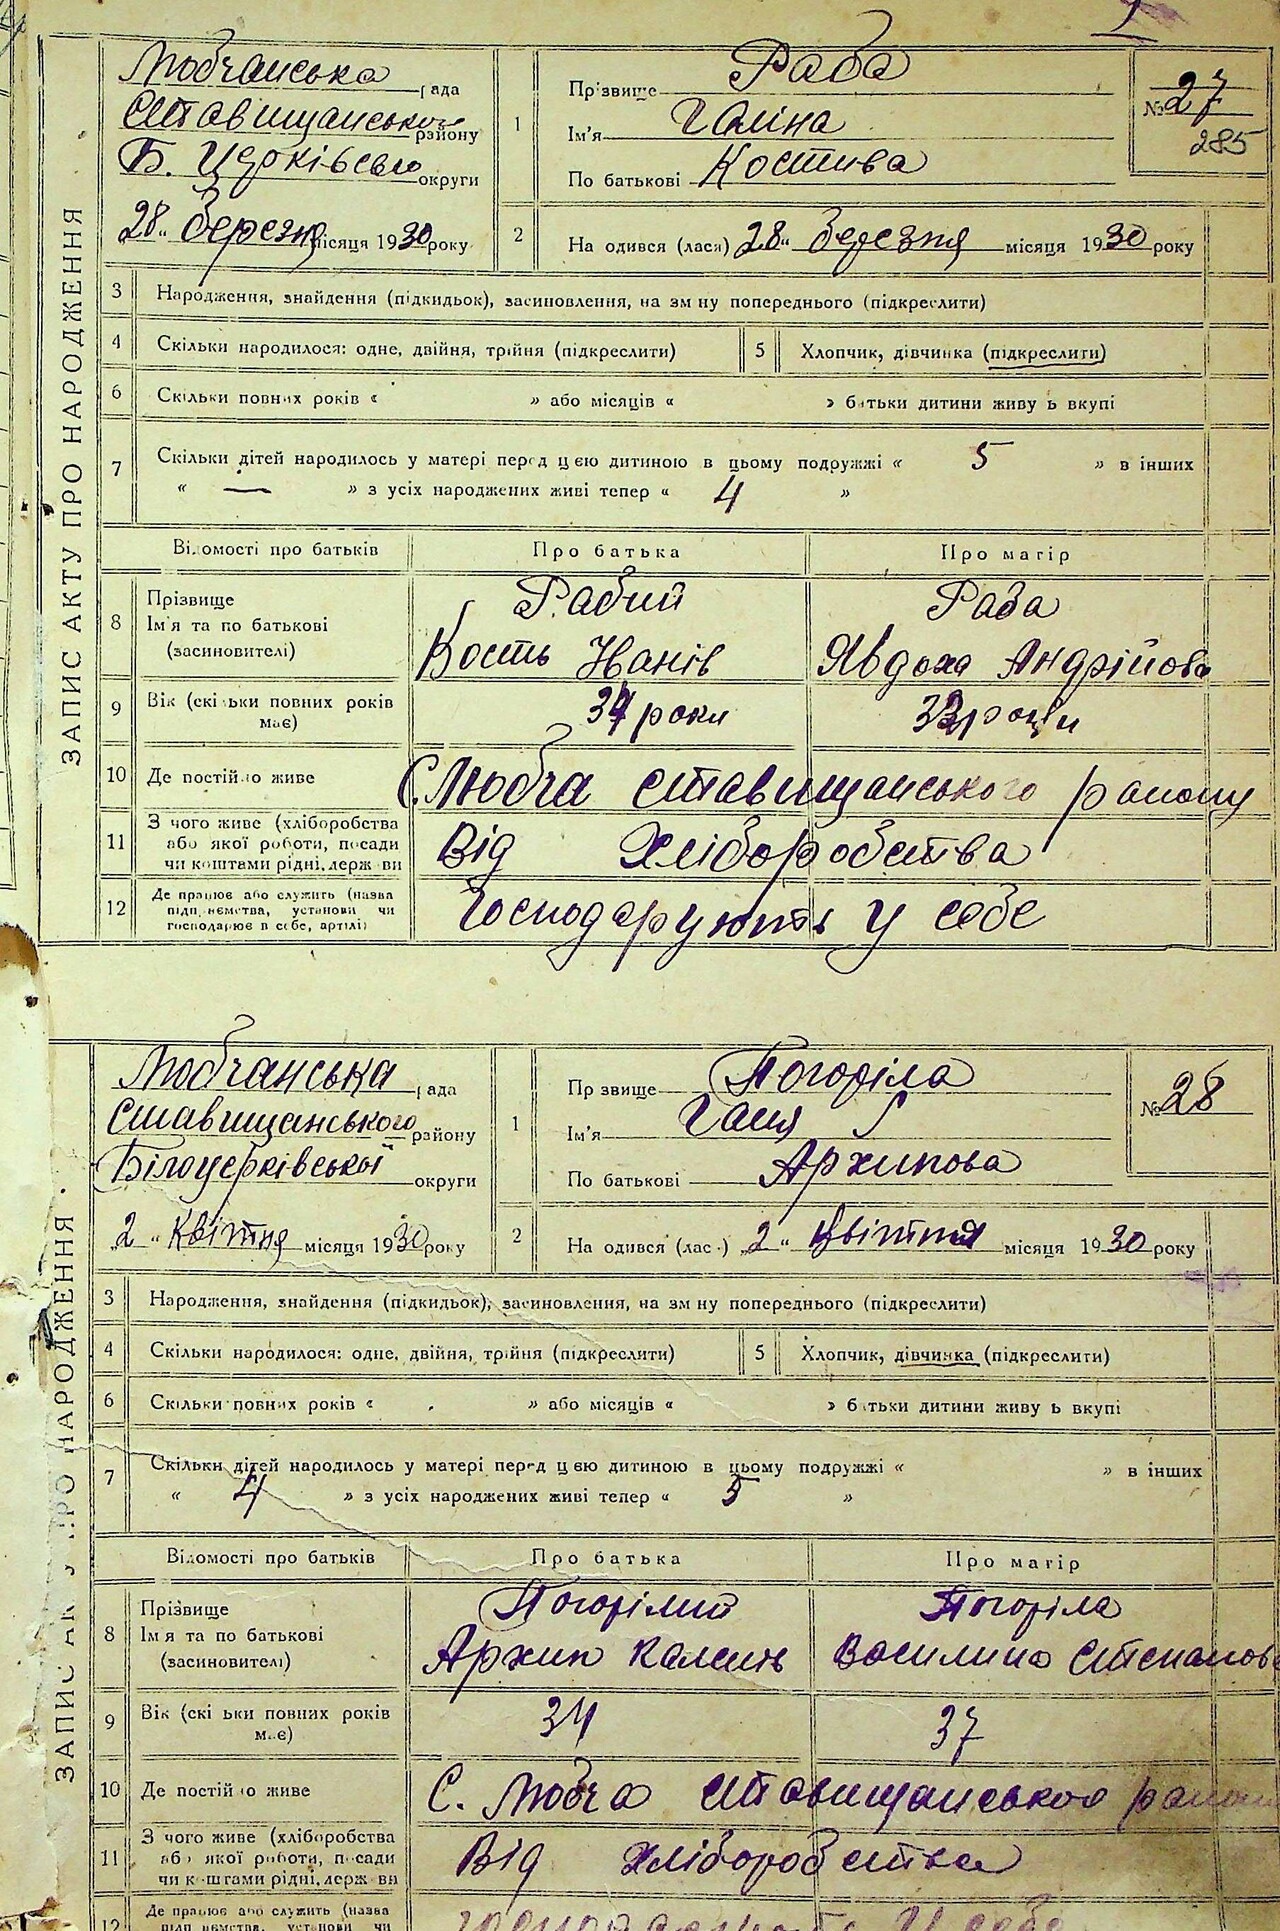 1
ЗАПИС АКТУ ПРО НАРОДЖЕННЯ
Любчанська рада
Ставищанського району
Б. Церківсько округи
28 " Березня місяця 1930 року
1
Прізвище Раба
Ім'я Галіна
По батькові Костива
№ 27
285
2
На одився (лася) 28 " Березня місяця 1930 року
3 Народження, знайдення (підкидьок), засиновлення, на зм ну попереднього (підкреслити)
4 Скільки народилося: одне, двійня, трійня (підкреслити)
5 Хлопчик, дівчинка (підкреслити)
6 Скільки повних років « » або місяців « » батьки дитини живу ь вкупі
7 Скільки дітей народилось у матері перед цією дитиною в цьому подружжі « 5 » в інших
« — » з усіх народжених живі тепер « 4 »
Відомості про батьків Про батька Про матір
8 Прізвище Рабий Раба
Ім'я та по батькові Кость Іванів Явдоха Андрійова
(засиновителі)
9 Вік (скільки повних років має) роки
10 Де постійно живе С. Любча Ставищанського району
11 З чого живе (хліборобства
або якої роботи, посади Від Хліборобства
чи коштами рідні, держ ви
12 Де працює або служить (назва
підп иємства, установи чи Господарують у себе
господарює в себе, артілі)
ЗАПИС АКТУ ПРО НАРОДЖЕННЯ
Любчанська рада
Ставищанського району
Білоцерківської округи
„2 " Квітня місяця 1930 року
1
Пр звище Погоріла
Ім'я Гася
По батькові Архипова
№ 28
2
На одився (лас ) 2 " Цвітня місяця 1930 року
3 Народження, знайдення (підкидьок), засиновлення, на зм ну попереднього (підкреслити)
4 Скільки народилося: одне, двійня, трійня (підкреслити)
5 Хлопчик, дівчинка (підкреслити)
6 Скільки повних років « » або місяців « » батьки дитини живу ь вкупі
7 Скільки дітей народилось у матері перед цією дитиною в цьому подружжі « » в інших
« 4 » з усіх народжених живі тепер « 5 »
Відомості про батьків Про батька Про матір
8 Прізвище Погорілий Погоріла
Ім'я та по батькові Архип Василина Степанов
(засиновителі)
9 Вік (скі ьки повних років має) 34 37
10 Де постій о живе С. Любча Ставищанського
11 З чого живе (хліборобства
або якої роботи, посади Від хліборобства
чи коштами рідні, держ ви
12 Де працює або служить (назва
підп иємства, установи чи у себе